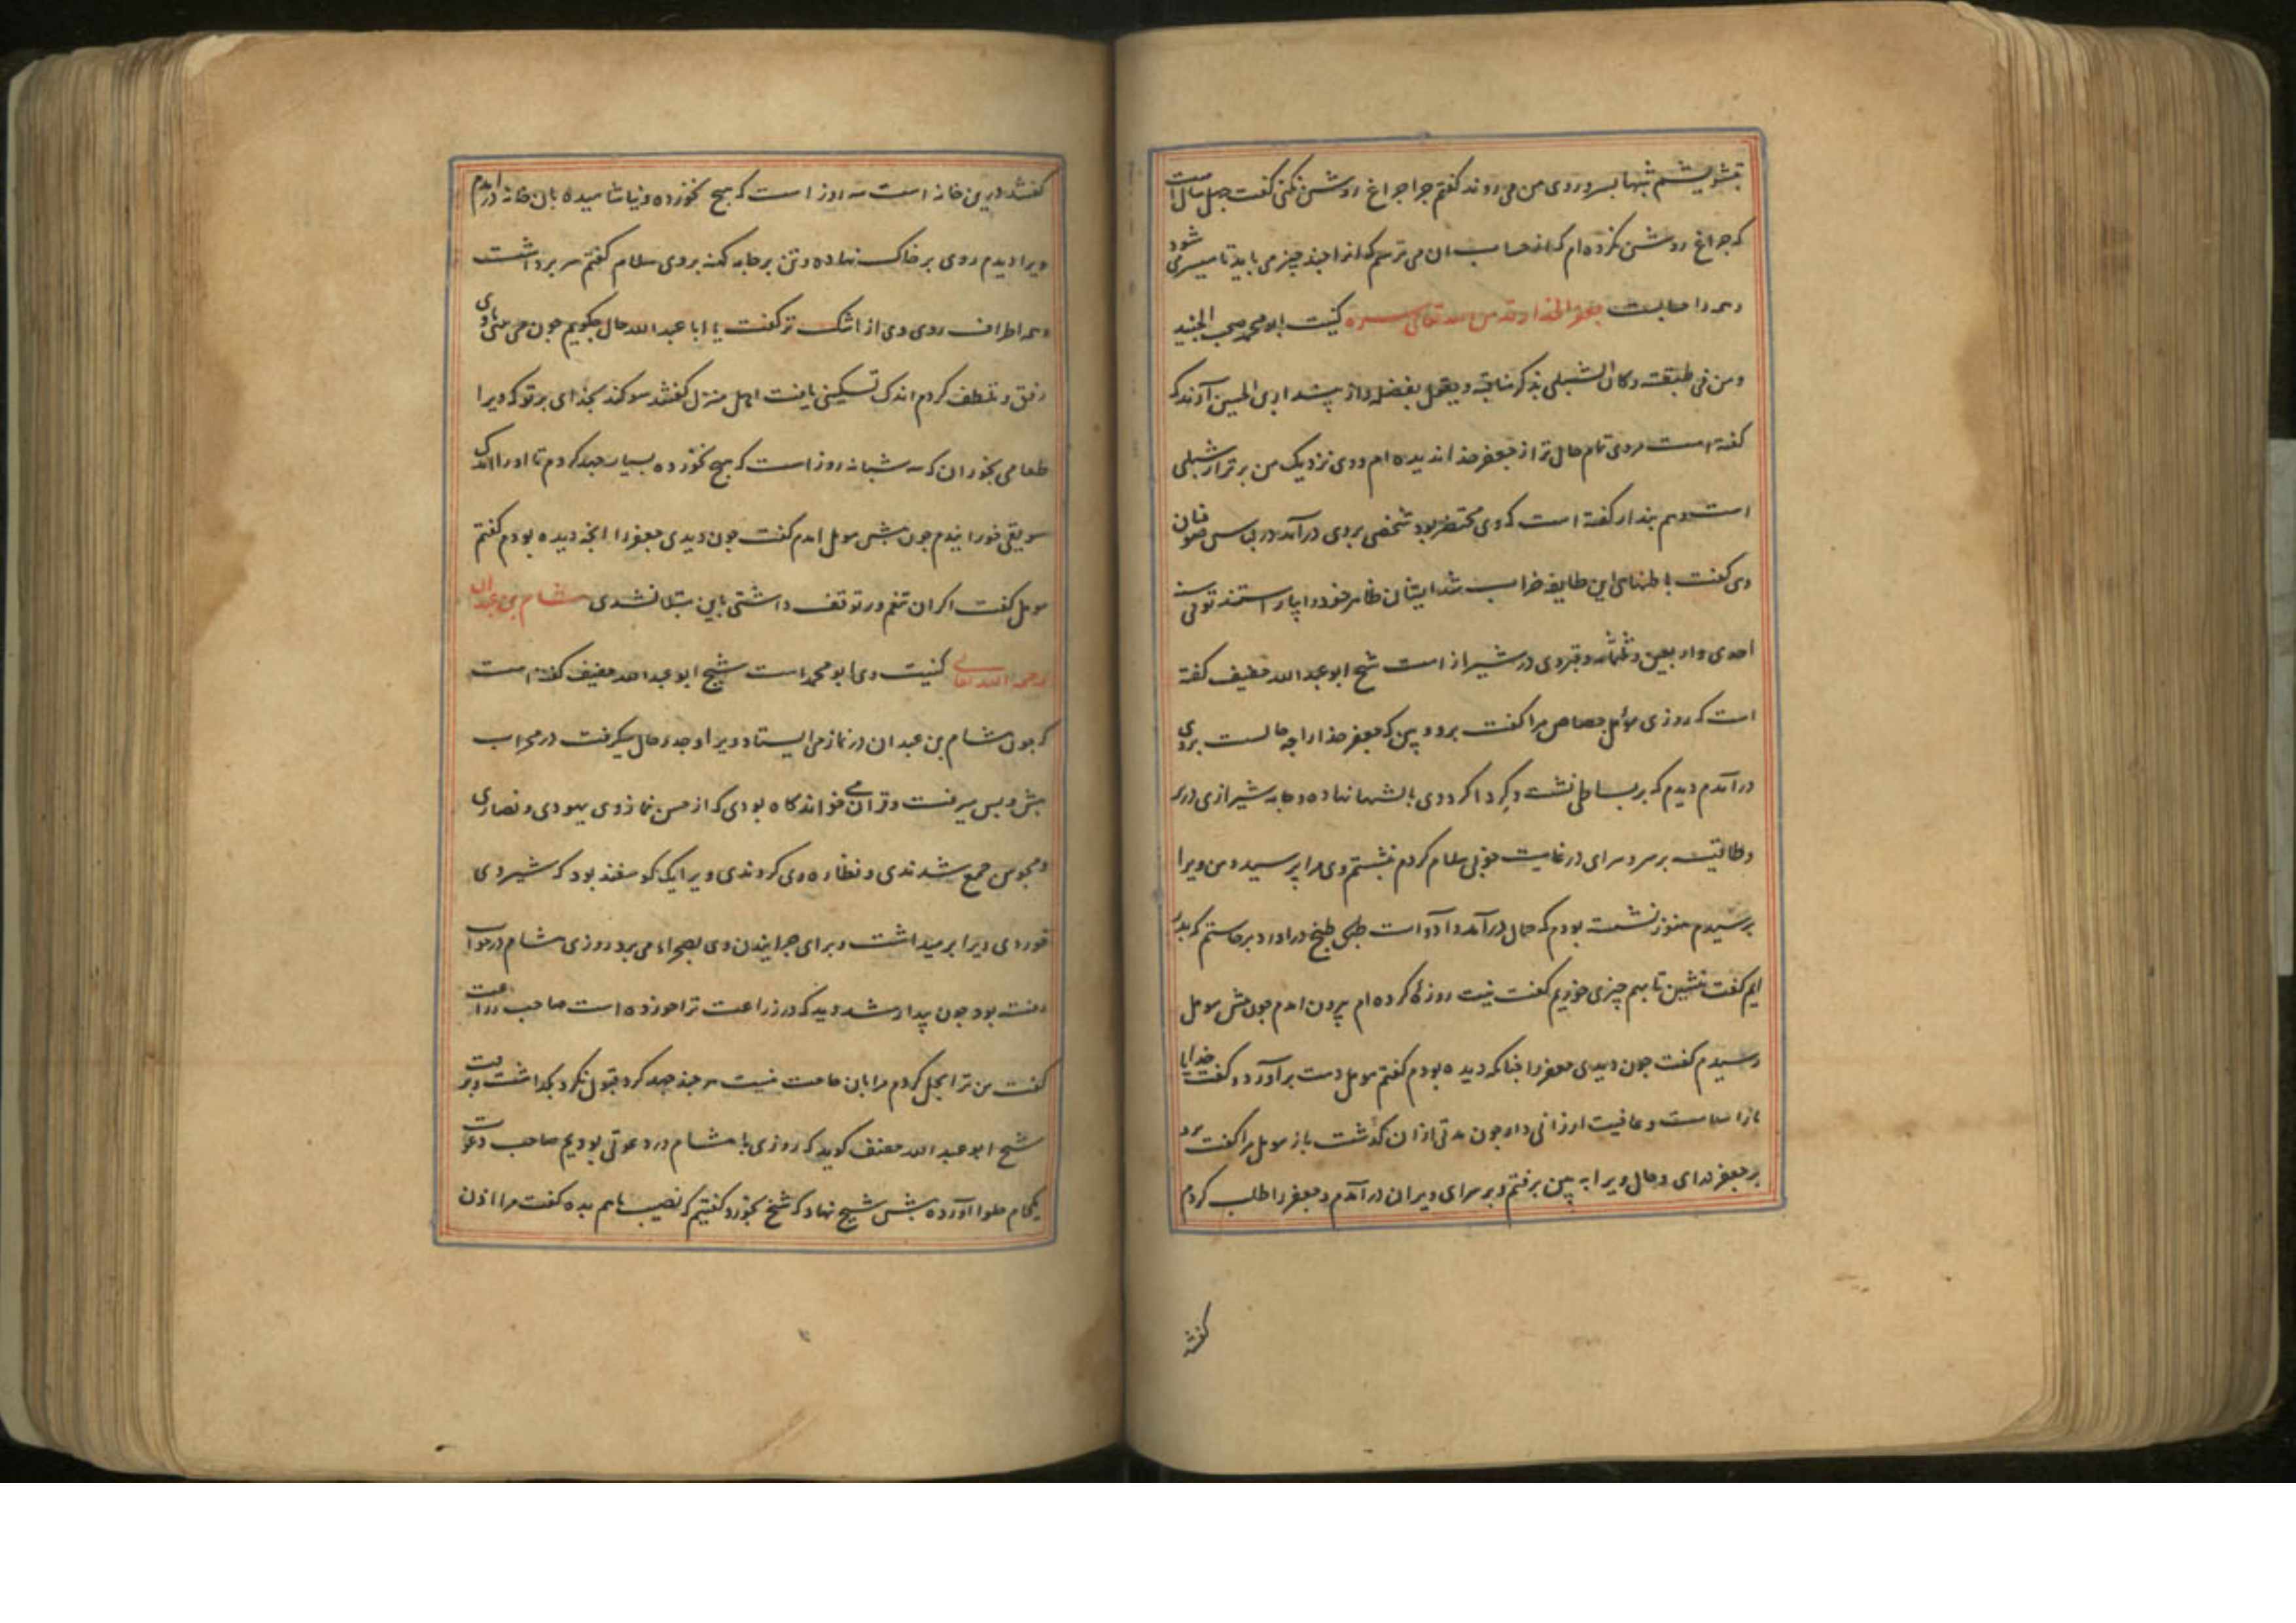 تشویشم شبها بسر و روی من می روند گفتم چرا چراغ روشن نکنی گفت چهل سال است
که چراغ روشن نکرده ام که از حساب ان می ترسم که انرا چند چیز می باید تا میسر می شود
و همه را حسابست جعفر الحذا قدس الله تعالی سره کنیت ابو محمد صحب الجنید
ومن فی طبقته وکان الشبلی یذکر مناقبه و یقول بفضله و از بندار بن الحسین آرند که
گفته است مردی تمام حال تر از جعفر حذا ندیده ام و وی نزدیک من برتر از شبلی
است و هم بندار گفته است که وی محتضر بود شخصی بر وی درآمد در لباس صوفیان
وی گفت باطنهای این طایفه خراب شد ایشان ظاهر خود را بیاراستند توفی سنة
احدی واربعین وثلثمائه و قبر وی در شیراز است شیخ ابو عبد الله خفیف گفته
است که روزی مؤمل جصاص مرا گفت برو و ببین که جعفر حذا را چه حالست بر وی
درآمدم دیدم که بر بساطی نشسته و گرداگرد وی بالشها نهاده و جامه شیرازی در بر
و طاقیه بر سر و سرای در غایت خوبی سلام کردم نشستم وی مرا پرسید و من ویرا
پرسیدم هنوز نشسته بودم که حمال درآمد و ادوات طبخ دراورد برخاستم که بدر
ایم گفت بنشین تا بهم چیزی خوریم گفت نیت روزه کرده ام بیرون امدم چون پیش مومل
رسیدم گفت چون دیدی جعفر را چنانکه دیده بودم گفتم مومل دست برآورد و گفت خدایا
مارا سلامت و عافیت ارزانی دار چون مدتی ازان گذشت باز مومل مرا گفت برو
بر جعفر درای و حال ویرا به بین برفتم و بر سرای ویران درآمدم و جعفر را طلب کردم
گفتند
گفتند درین خانه است سه روز است که هیچ نخورده و نیاشامیده بان خانه درامدم
ویرا دیدم روی بر خاک نهاده و تن بر جامه کهنه بر وی سلام گفتم سر برداشت
و همه اطراف روی وی از اشک تر گفت یا ابا عبد الله حال چگویم چون می بینی با وی
رفق و تلطف کردم اندک تسکینی یافت اهل منزل گفتند سوکند بخدای بر تو که ویرا
طعامی بخوران که سه شبانه روز است که هیچ نخورده بسیار جهد کردم تا اورا اندک
سویقی خورانیدم چون پیش مومل امدم گفت چون دیدی جعفر را انچه دیده بودم گفتم
مومل گفت اگر ان تنعم در توقف داشتی باین مبتلا نشدی هشام بن عبدان
رحمه الله تعالی کنیت وی ابو محمد است شیخ ابو عبد الله خفیف گفته است
که چون هشام بن عبدان در نماز می ایستاد ویرا وجد و حال میگرفت در محراب
پیش و پس میرفت و قرآن می خواند گاه بودی که از حسن نماز وی یهودی و نصاری
و مجوس جمع شدندی و نظاره وی کردندی ویرا یک گوسفند بود که شیر وی
خوردی ویرا بر میداشت و برای چرانیدن وی بصحراء می برد روزی هشام در خواب
رفته بود چون بیدار شد دید که در زراعت ترا خورده است صاحب زراعت
گفت من ترا بحل کردم مرا بان حاجت نیست هر چند جهد کرد قبول نکرد بگذاشت و برفت
شیخ ابو عبد الله خفیف گوید که روزی با هشام در دعوتی بودیم صاحب دعوت
یک جام حلوا آورده پیش شیخ نهاد که شیخ نخورد گفتیم که نصیب ما هم بده گفت مرا اذن